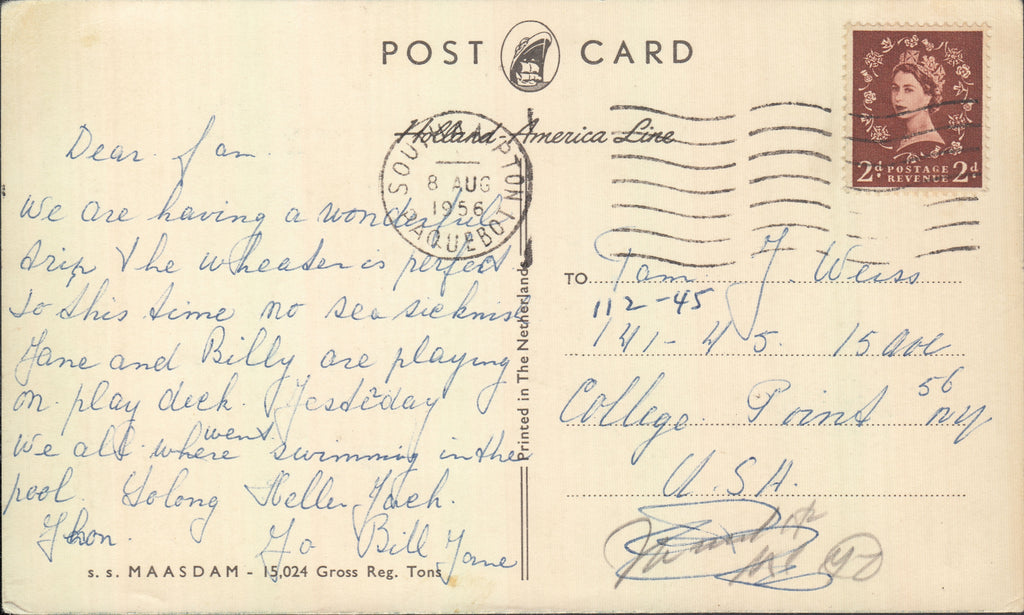 POST CARD
Holland-America Line
SOUTHAMPTON
8 AUG
1956
PAQUEBOT
2d POSTAGE REVENUE 2d
Dear Pam.
We are having a wonderful
trip the wheater is perfect.
To this time no sea sicknis
Jane and Billy are playing
on play deck. Jesteday
went
We all where swimming in the
pool. Solong
Bill Jane
Printed in The Netherlands
TO Pam. J. Weiss
112-45
141-45. 15 ave
College Point 56 NY
U.S.A.
s.s. MAASDAM - 15,024 Gross Reg. Tons